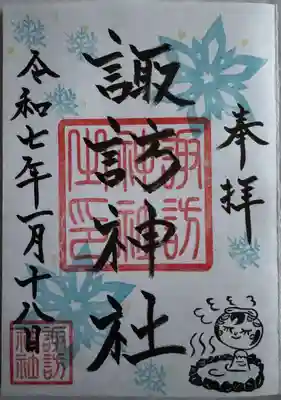 奉拝
諏訪神社
諏訪神社之印
令和七年一月十八日
諏訪神社